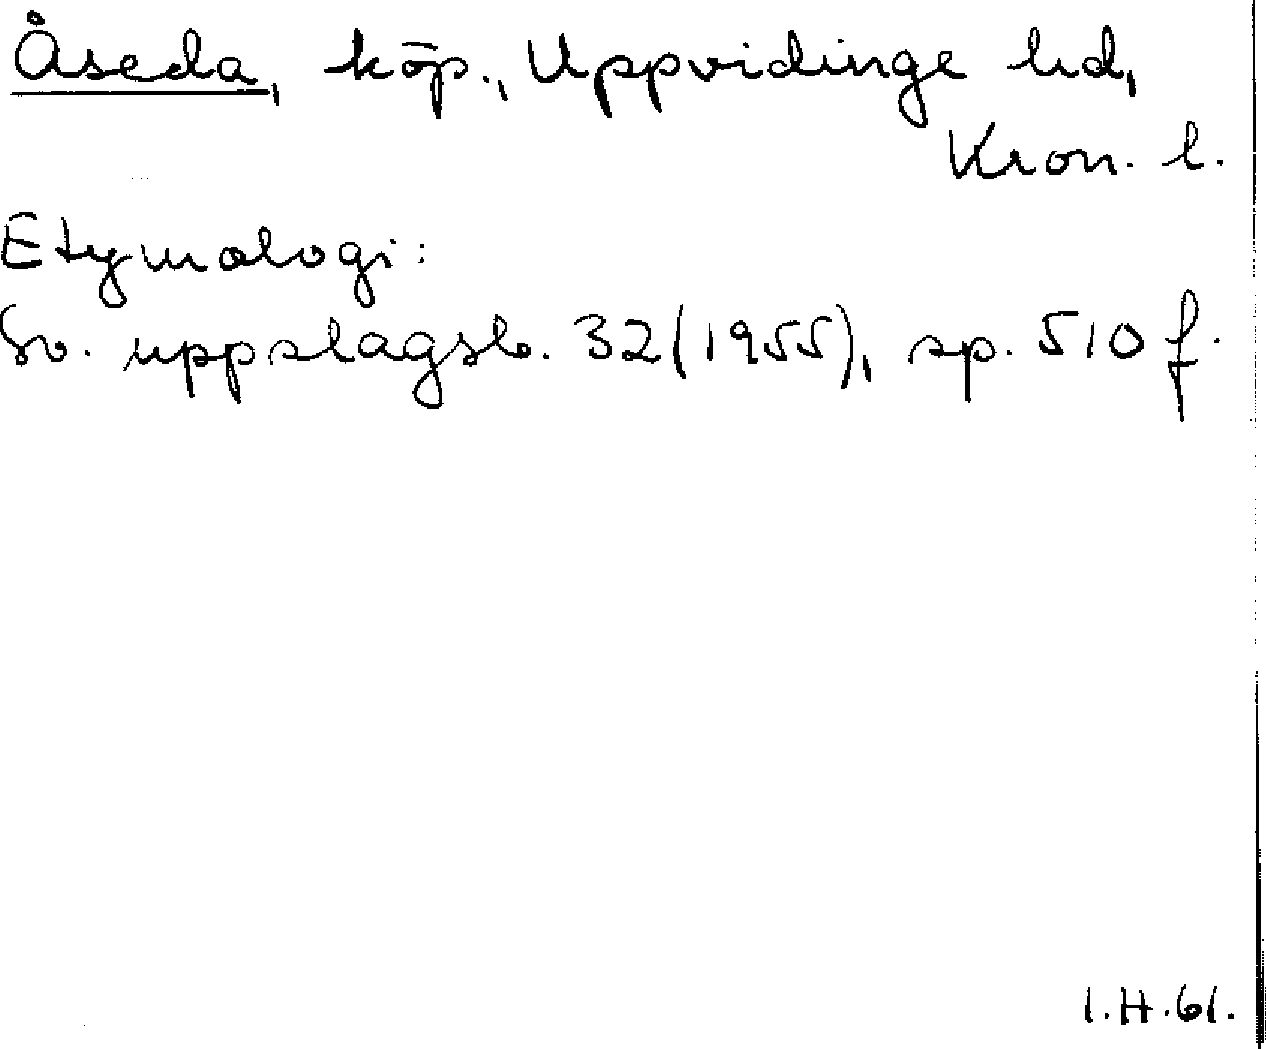 Åseda, köp., Uppvidinge hd,
Kron. l.
Etymologi:
Sv. uppslagsb. 32(1955), sp. 510 f.
I.H.61.